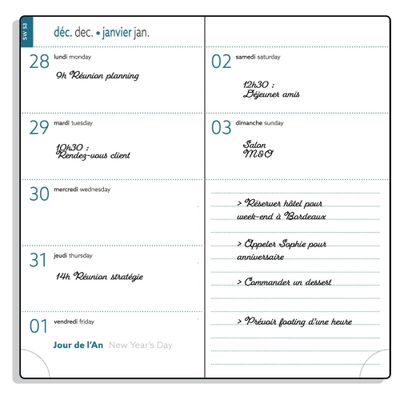 SW 53
déc. dec. • janvier jan.
28 lundi monday
9h Réunion planning
29 mardi tuesday
10h30 :
Rendez-vous client
30 mercredi wednesday
31 jeudi thursday
14h Réunion stratégie
01 vendredi friday
Jour de l'An New Year's Day
02 samedi saturday
12h30 :
Déjeuner amis
03 dimanche sunday
Salon
M&O
> Réserver hôtel pour
week-end à Bordeaux
> Appeler Sophie pour
anniversaire
> Commander un dessert
> Prévoir footing d'une heure